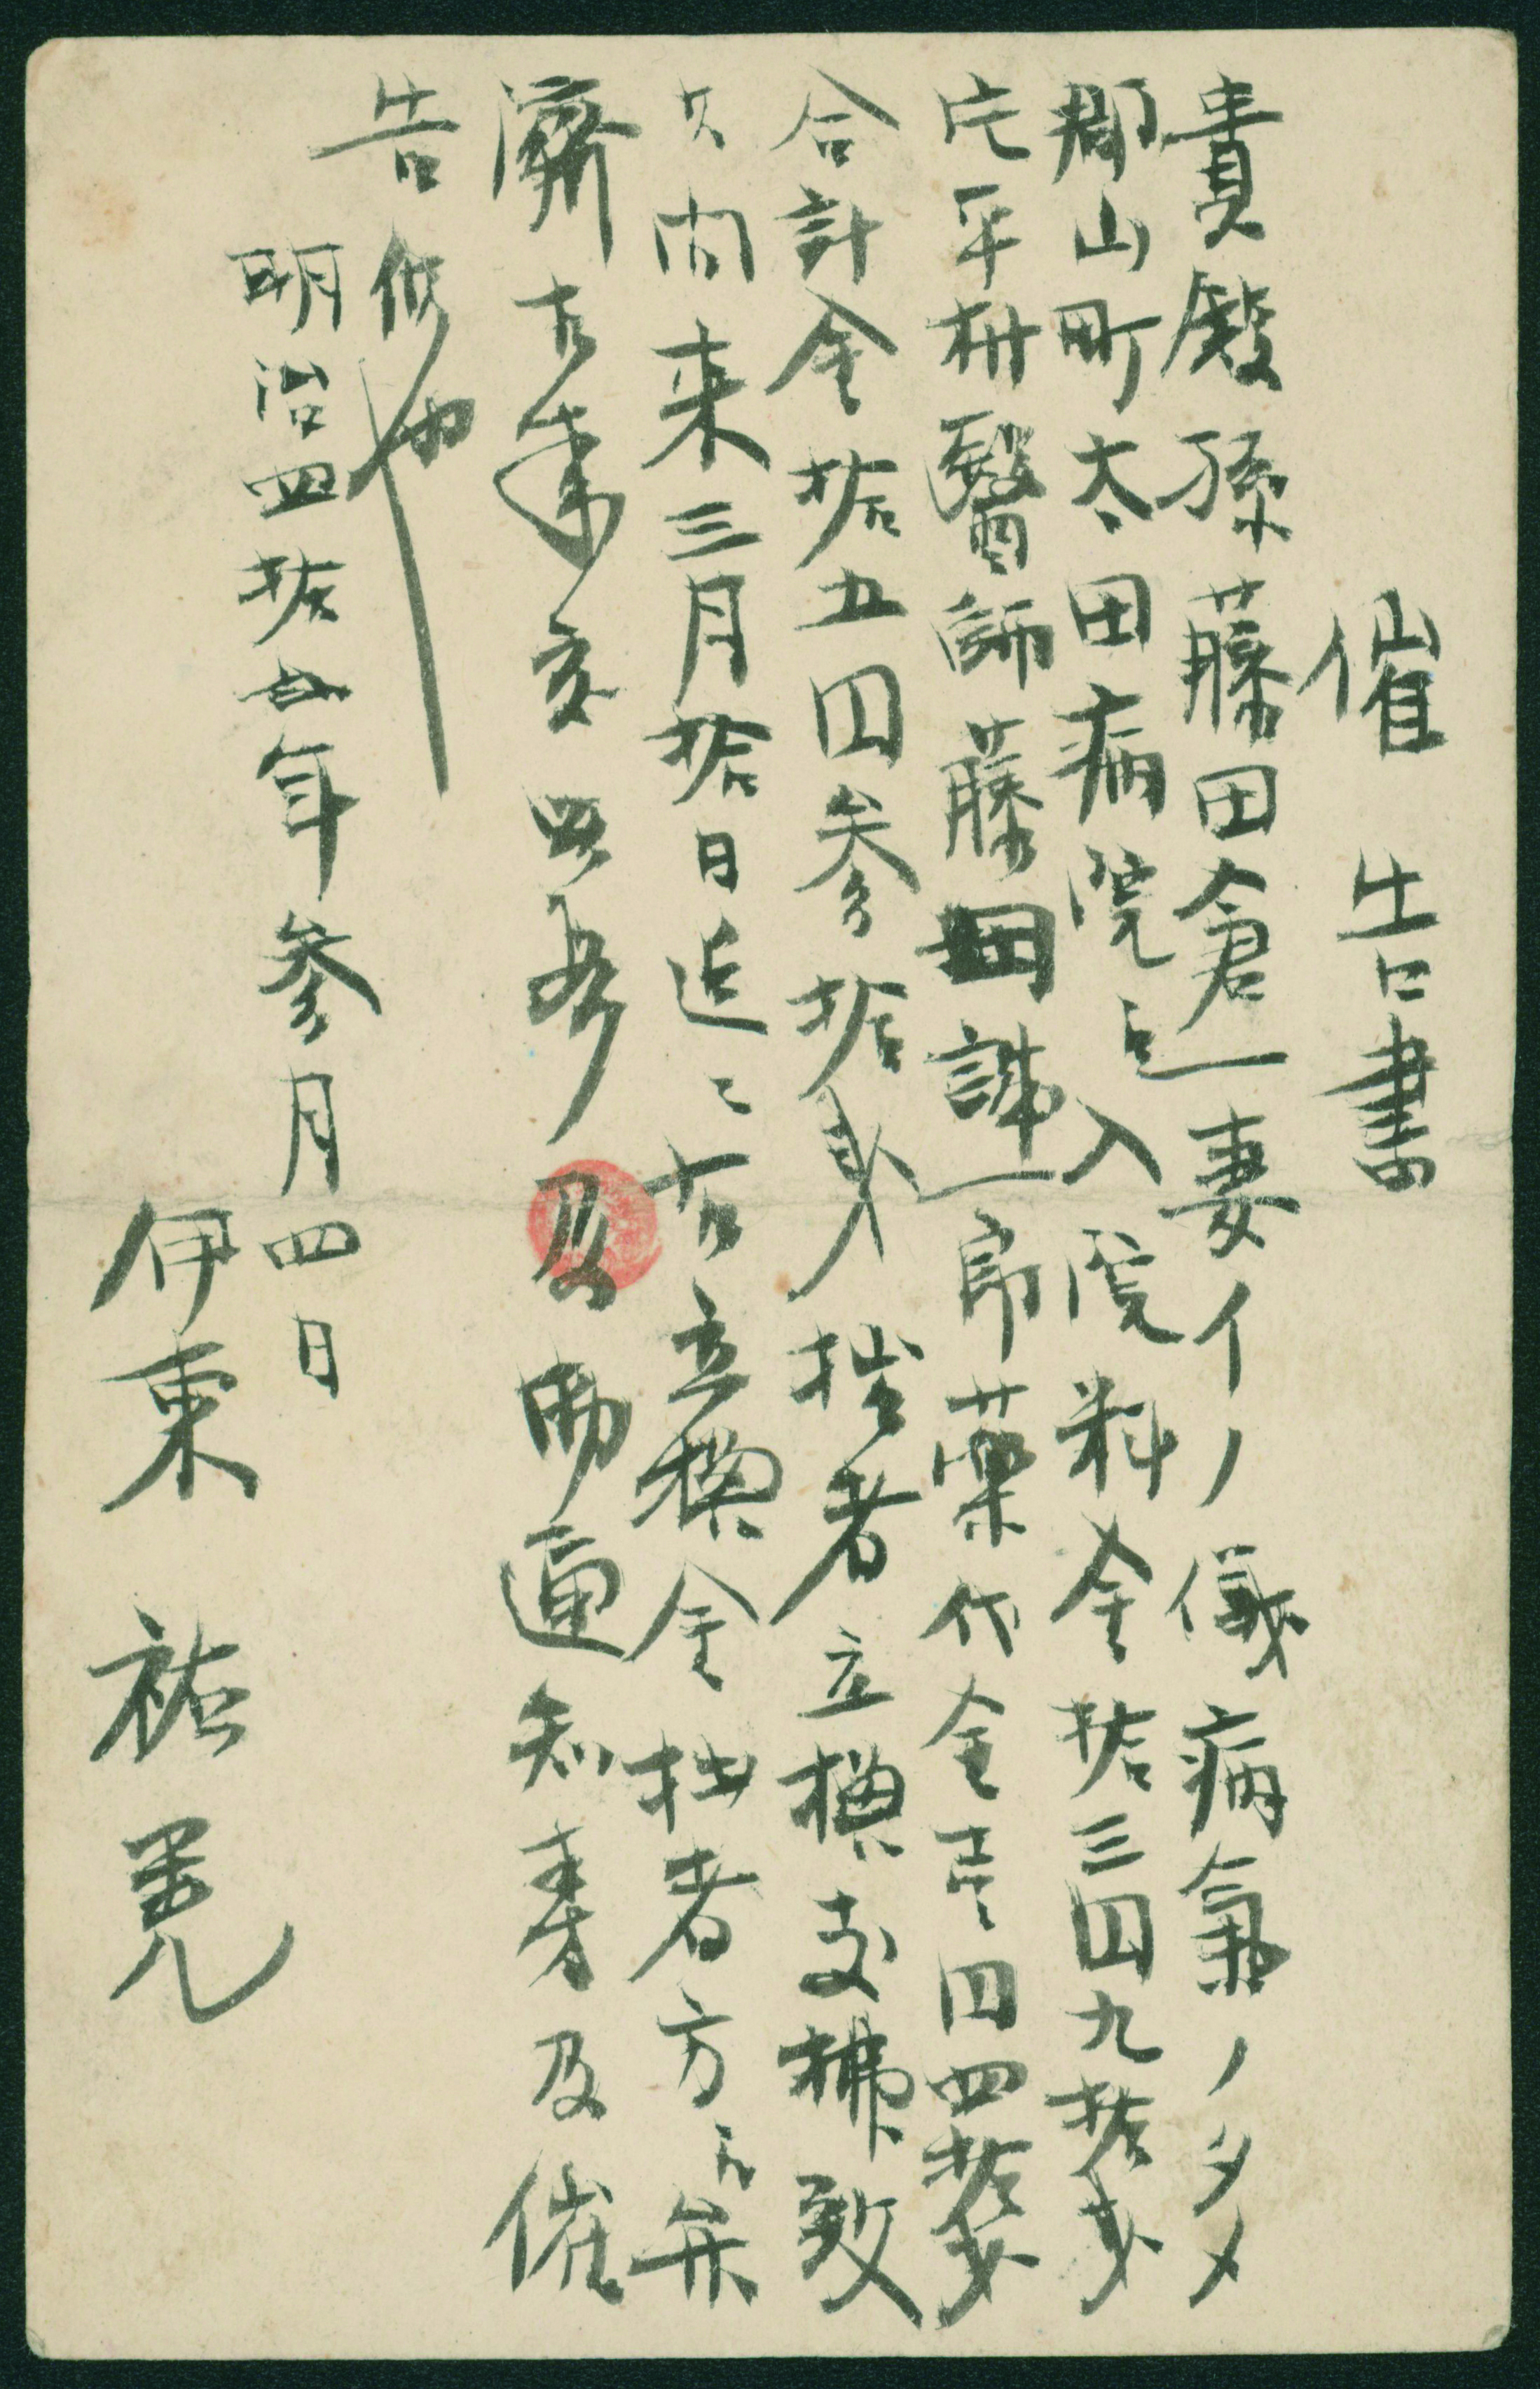 催告書
貴殿孫藤田倉一妻イノ儀病氣ノタメ
郡山町太田病院ニ入院料金拾三円九拾銭
醫師藤田誠一郎藥代金壱円四拾銭
合計金拾五円参拾銭拙者立換支拂致
候間来三月拾日迄ニ右立換金拙者方ヘ弁
濟相成度此段及御通知旁及催
告候也
明治四拾五年参月四日
伊東祐晃